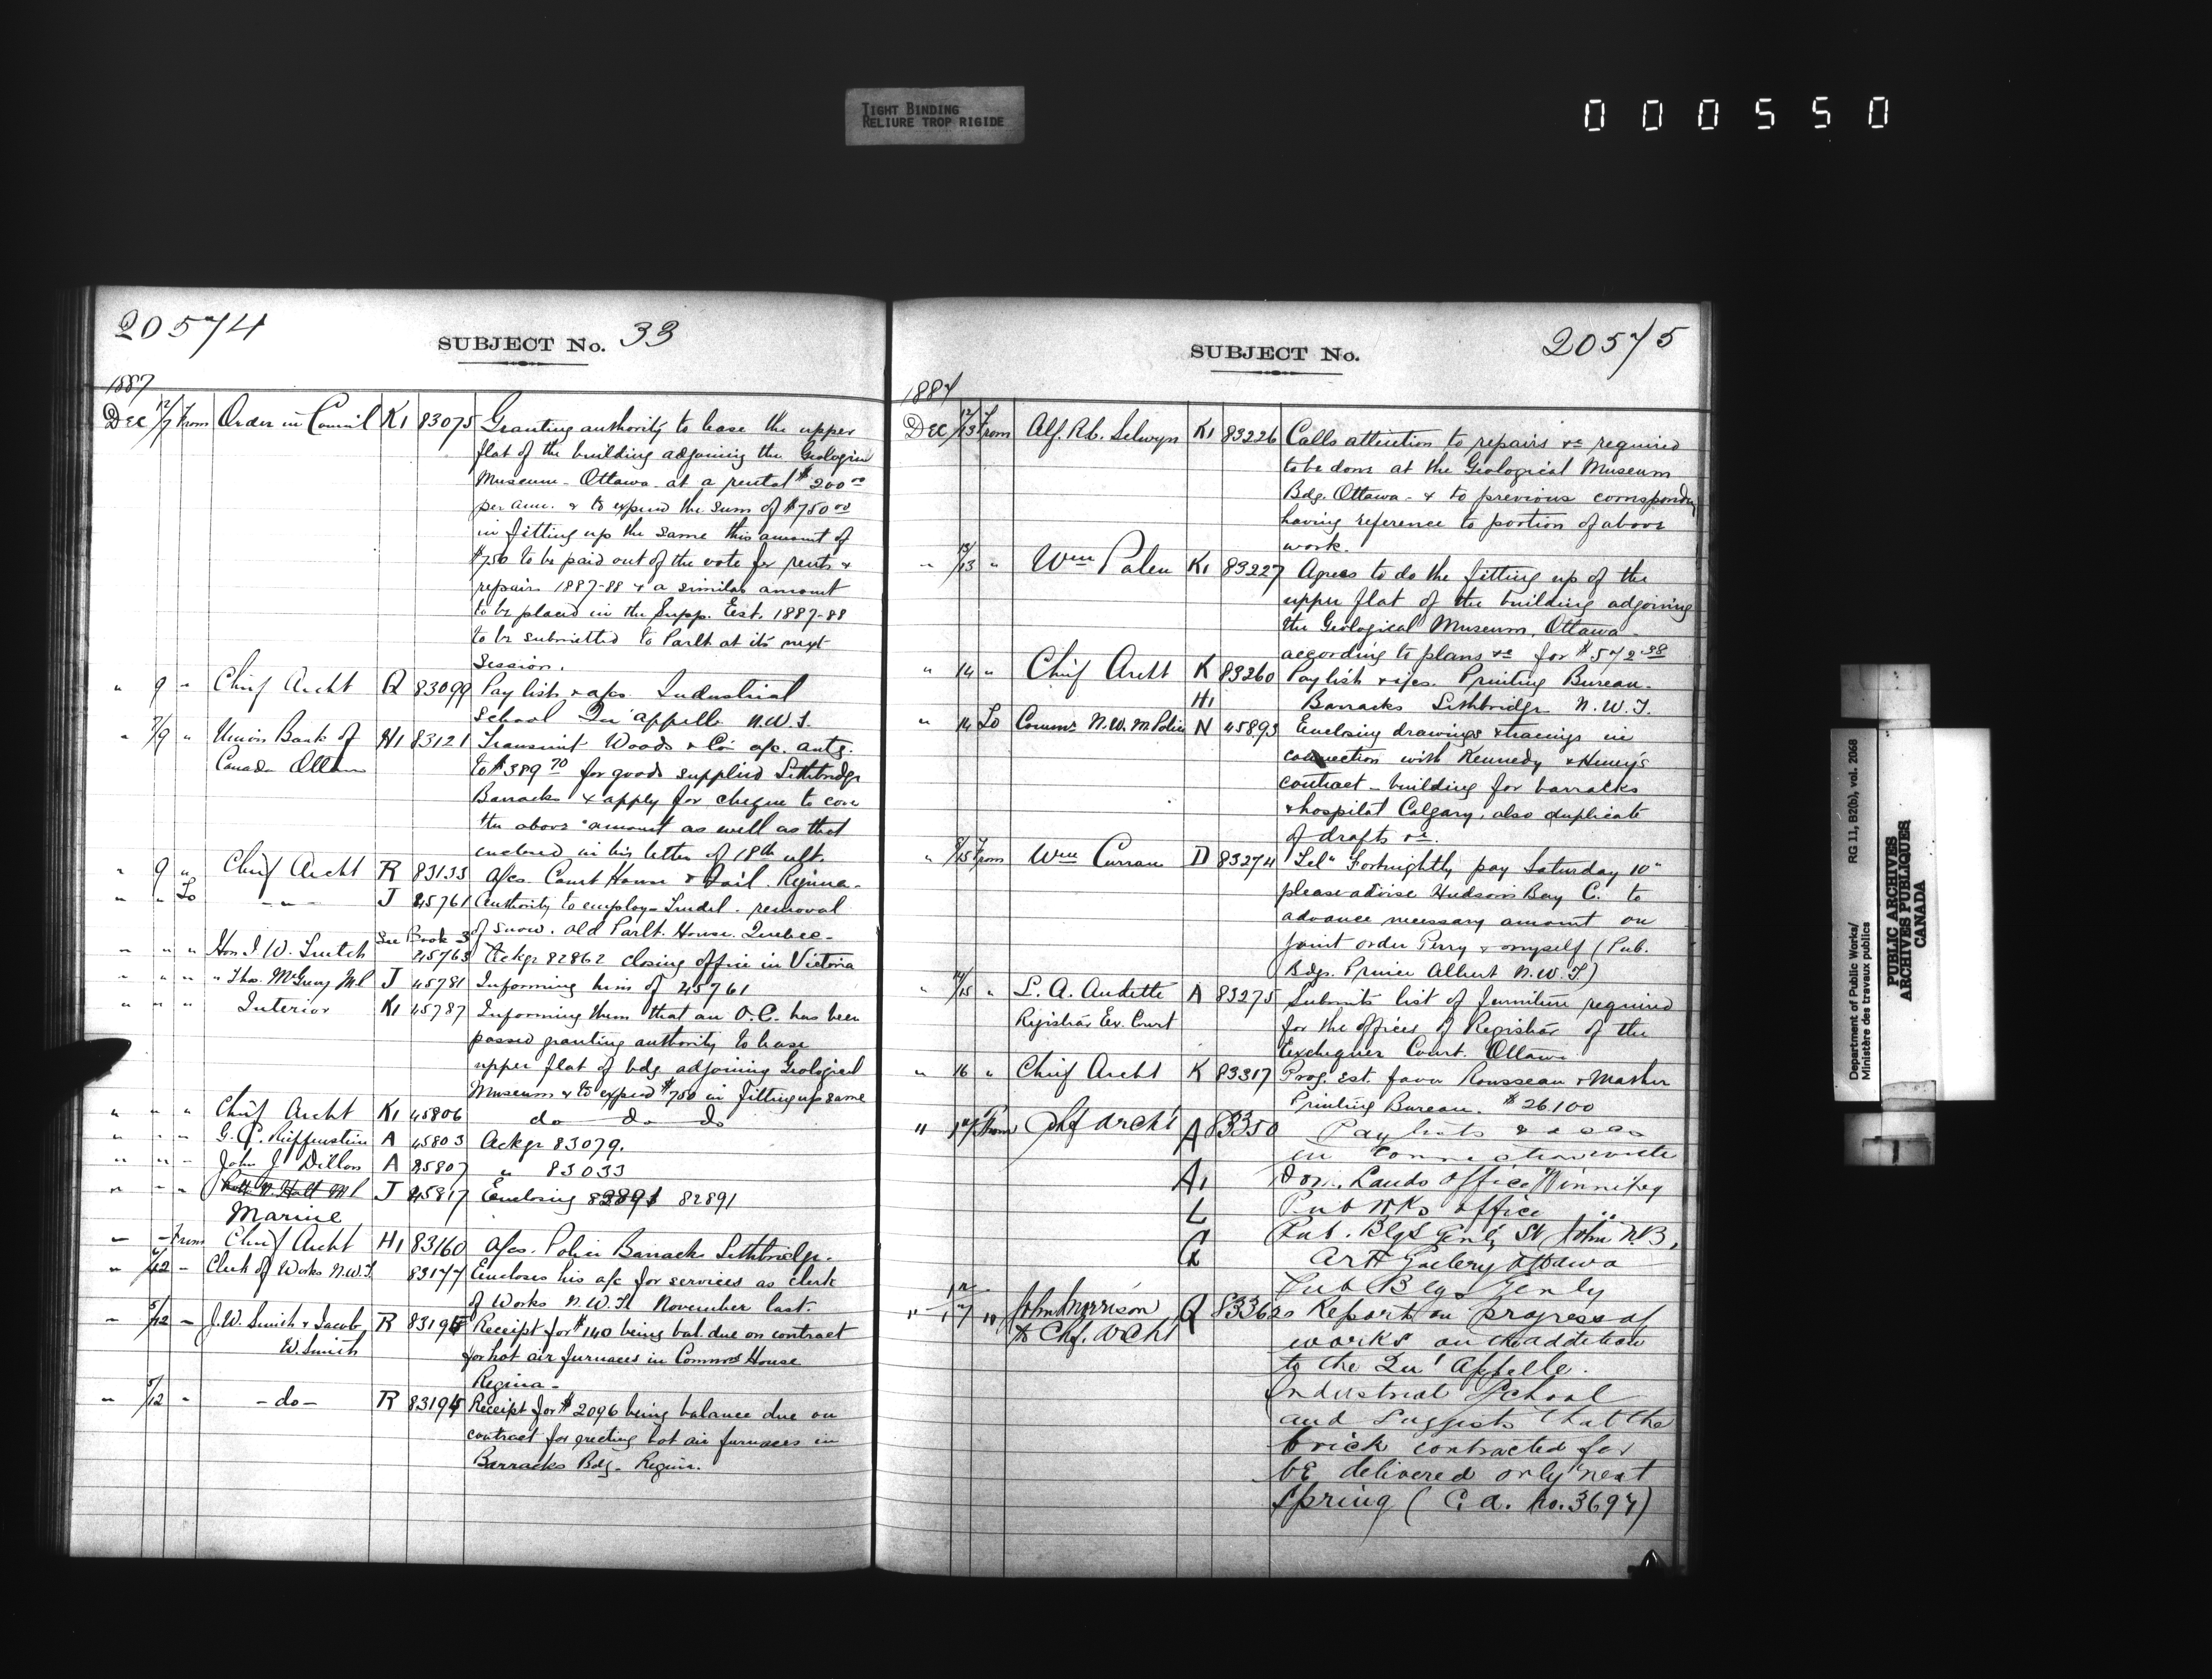 TIGHT BINDING
RELIURE TROP RIGIDE
000550
20574
SUBJECT No. 33
1887
Dec 12/7 From Order in Council K1 83075 Granting authority to lease the upper
flat of the building adjoining the Geological
Museum - Ottawa - at a rental $200.00
per ann. & to expend the sum of $750.00
in fitting up the same this amount of
$750 to be paid out of the vote for rents &
repairs 1887-88 & a similar amount
to be placed in the Supp. Est. 1887-88
to be submitted to Parlt at its next
Session.
" 9 " Chief Archt Q 83099 Pay lists & a/cs. Industrial
School Qu'appelle N.W.T.
" 7/9 " Union Bank of H1 83121 Transmit Woods & Co a/c. amtg.
Canada Ottawa to $389.70 for goods supplied Lethbridge
Barracks & apply for cheque to cover
the above amount as well as that
enclosed in his letter of 18th ult.
" 9 " Chief Archt R 83133 A/cs. Court House & Jail. Regina.
" " To - " - J 45761 Authority to employ - removal
of snow. Old Parlt. House. Quebec -
" " " Hon J. W. Trutch See Book 3 45763 Ackgs 82862 closing office in Victoria
" " " Thos. McGreevy M.P. J 45781 Informing him of 45761
" " " Interior K1 45787 Informing them that an O.C. has been
passed granting authority to lease
upper flat of bdg adjoining Geological
Museum & to expend $750 in fitting up same
" " " Chief Archt K1 45806 do do do
" " " G. C. Reiffenstein A 45803 Ackgs 83079.
" " " John J. Dillon A 45807 " 83033
" " " J 45817 Enclosing 82891 82891
Marine
" " From Chief Archt H1 83160 A/cs. Police Barracks Lethbridge.
" /12 " Clerk of Works N.W.T. 83177 Encloses his a/c for services as clerk
of Works N.W.T. November last.
" 5/12 " J.W. Smith & Jacob R 83195 Receipt for $140 being bal. due on contract
W. Smith for hot air furnaces in House
Regina -
" 5/12 " - do - R 83194 Receipt for $2096 being balance due on
contract for erecting hot air furnaces in
Barracks Bdg - Regina.
SUBJECT No.
20575
1887
Dec 12/13 From Alf. R. C. Selwyn K1 83226 Calls attention to repairs &c required
to be done at the Geological Museum
Bdg. Ottawa - & to previous correspondce
having reference to portion of above
work.
" 13/13 " Wm Palen K1 83227 Agrees to do the fitting up of the
upper flat of the building adjoining
the Geological Museum, Ottawa -
according to plans &c for $572.98
" 14 " Chief Archt K 83260 Pay list & a/cs. Printing Bureau.
H1 Barracks Lethbridge N.W.T.
" 14 To Commr N.W.M. Police N 45893 Enclosing drawings & tracings in
connection with Kennedy & Henry's
contract - building for barracks
& hospital Calgary, also duplicate
of drafts &c.
" 9/15 From Wm Curran D 83274 "Tel" Fortnightly pay Saturday 10"
please advise Hudson's Bay C. to
advance necessary amount on
joint order Perry & myself (Pub.
Bdgs. Prince Albert N.W.T)
" 14/15 " L. A. Audette A 83275 Submits list of furniture required
Registrar Ex. Court for the offices of Registrar of the
Exchequer Court. Ottawa
" 16 " Chief Archt K 83317 Prog. Est. favor Rousseau & Mather
Printing Bureau. $26.100
" 17 From Chf Archt A 83350 Pay lists & a/cs
in connection with
A1 Dom. Lands Office Winnipeg
L Pub Wks Office "
G Pub. Bdgs Genly St John N.B,
Art Gallery Ottawa
Pub Bdgs Genly
" 12/17 " John Morrison Q 83362 Report on progress of
to Chf. Archt works on the addition
to the Qu'Appelle
Industrial School
and suggests that the
brick contracted for
be delivered only next
spring (C.A. No. 3697)
Department of Public Works/
Ministère des travaux publics
RG 11, B2(b), vol. 2068
PUBLIC ARCHIVES
ARCHIVES PUBLIQUES
CANADA